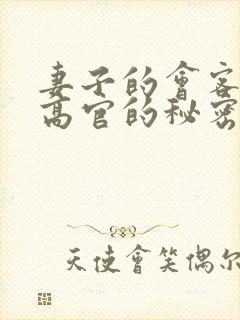 妻子的會客
高官的秘密
天使會笑偶尔